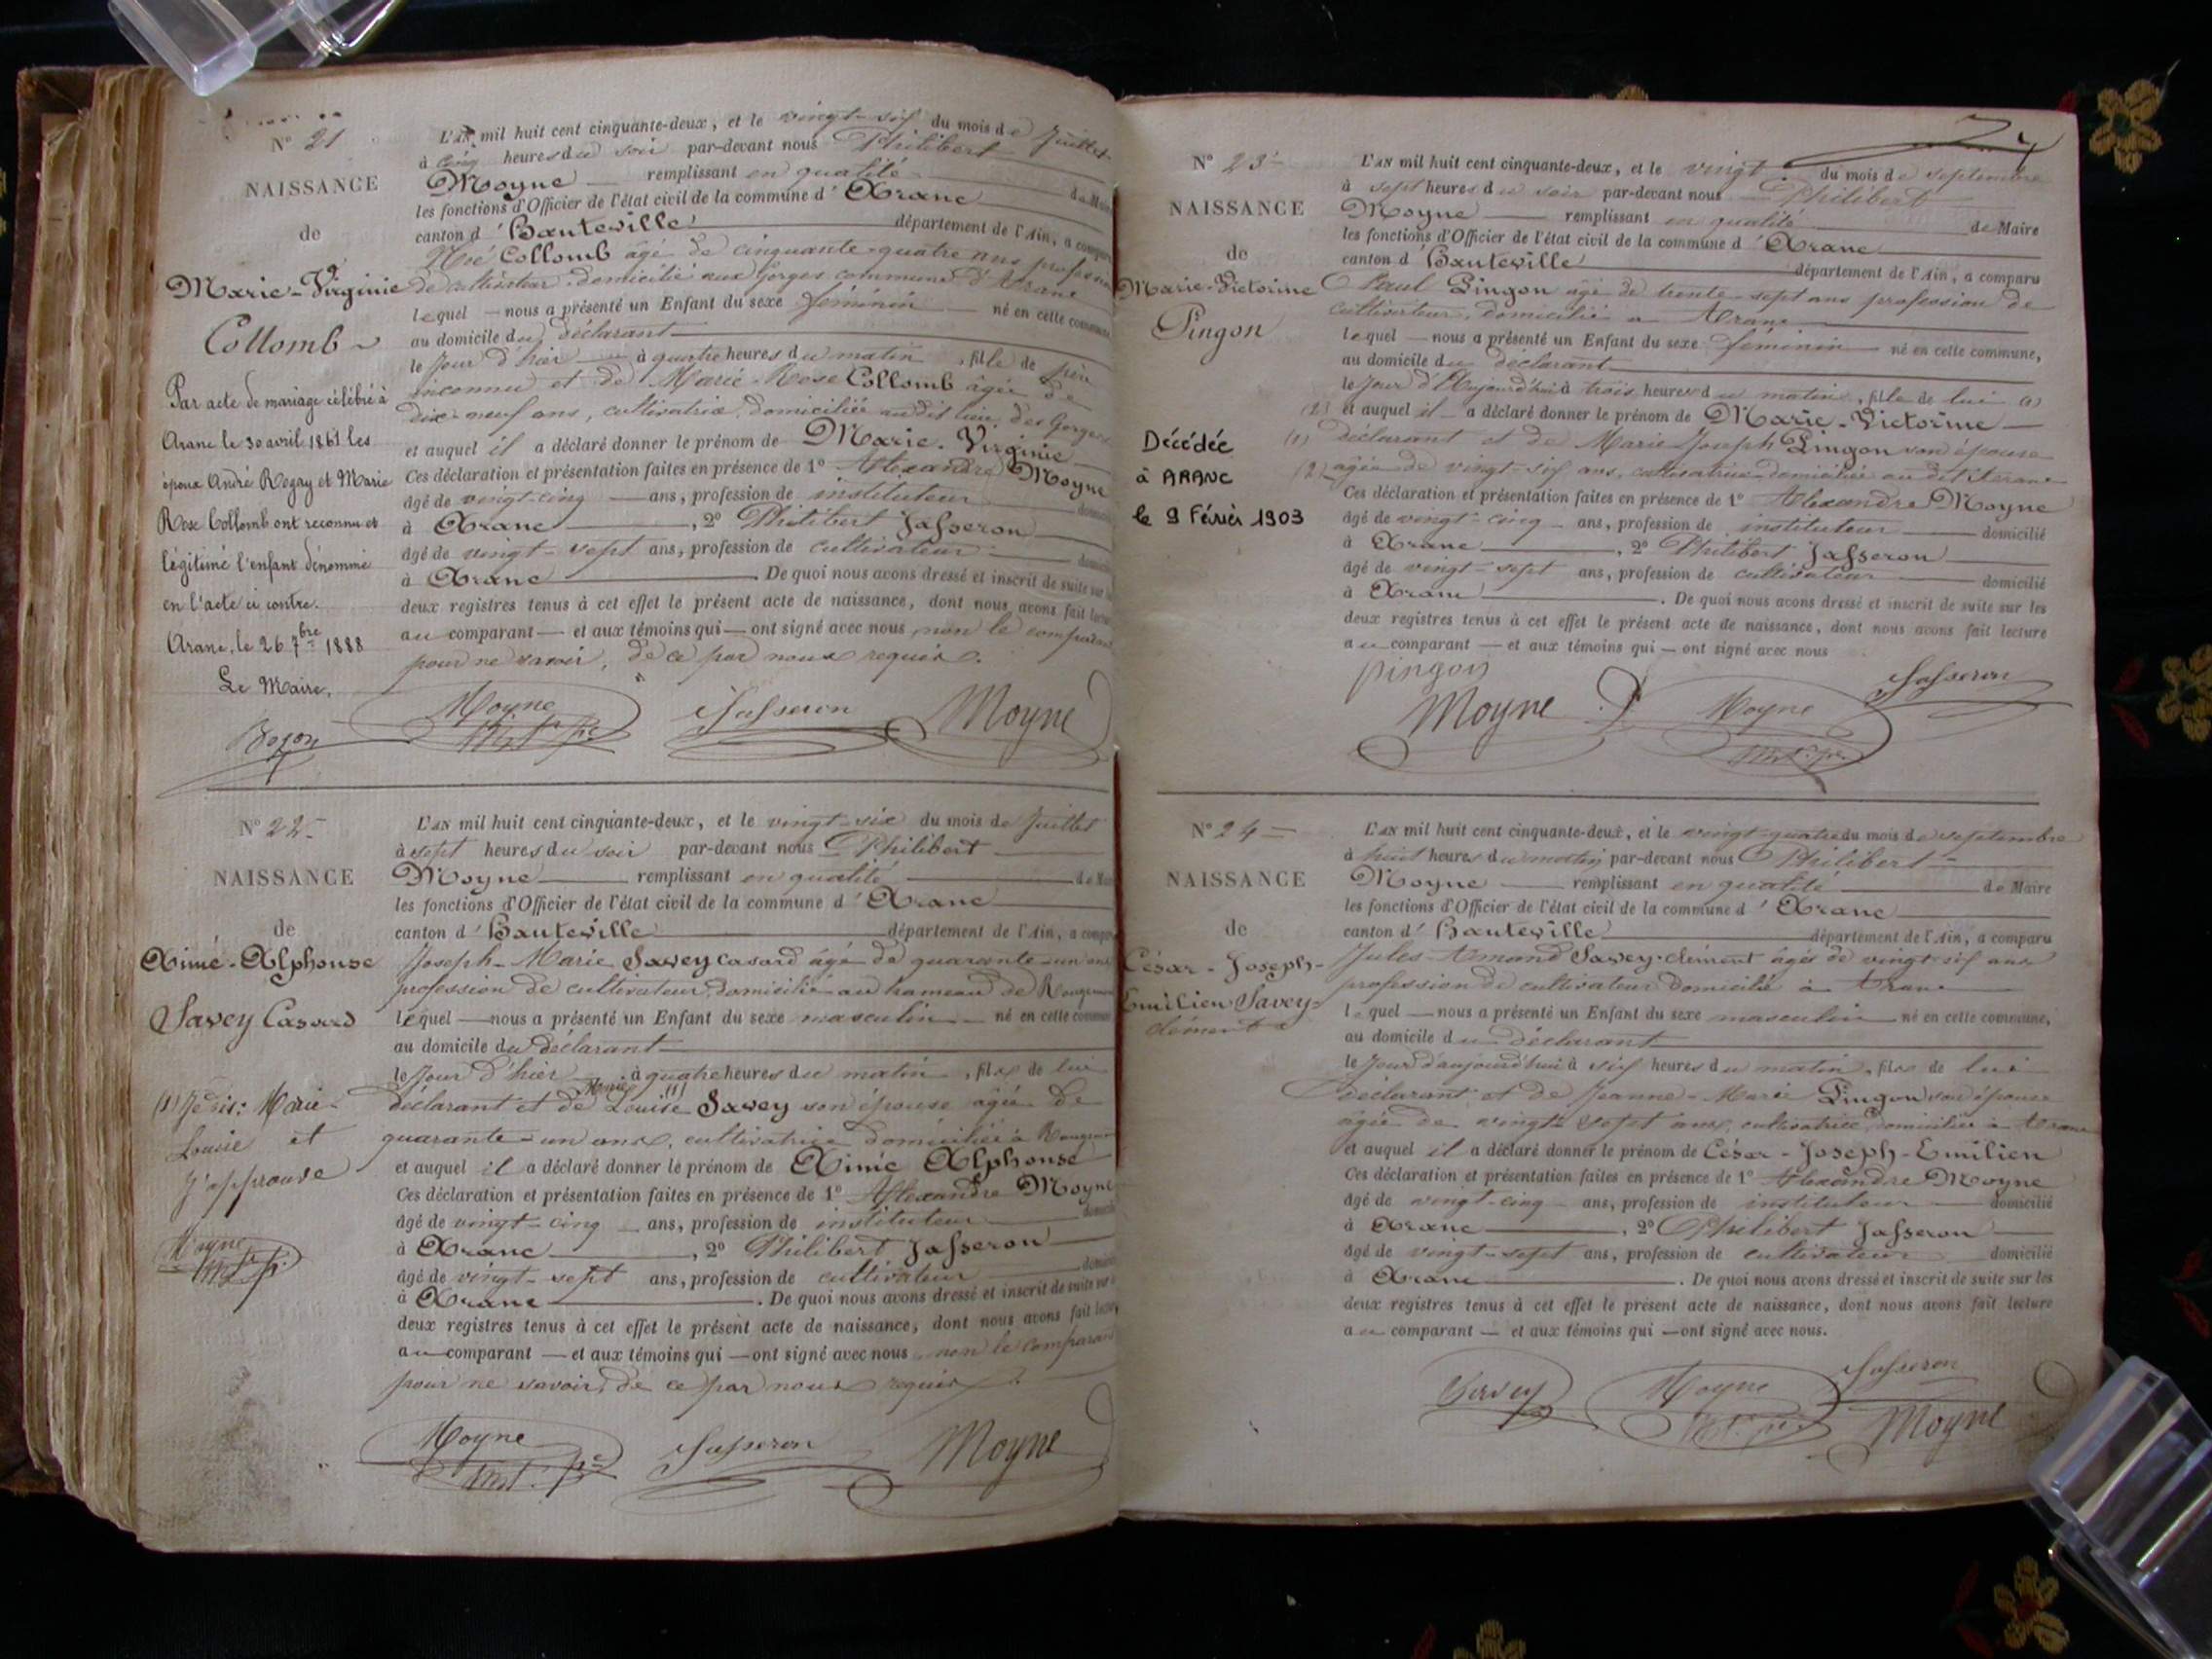 N° 21
NAISSANCE
de
Marie-Virginie
Collomb
Par acte de mariage célébré à
Aranc le 30 avril 1861 les
époux André Regay et Marie
Rose Collomb ont reconnu et
légitimé l'enfant dénommé
en l'acte ci contre.
Aranc, le 26 7bre 1888
Le Maire,
Bozon
L'AN mil huit cent cinquante-deux, et le vingt-six du mois de Juillet
à cinq heures du soir par-devant nous Philibert
Moyne remplissant en qualité de Maire
les fonctions d'Officier de l'état civil de la commune d'Aranc
canton d'Hauteville département de l'Ain, a comparu
Collomb âgé de cinquante-quatre ans profession
de cultivateur domicilié aux Gorges commune d'Aranc
lequel nous a présenté un Enfant du sexe féminin né en cette commune
au domicile du déclarant
le Jour d'hier à quatre heures du matin, fille de père
inconnu et de Marie-Rose Collomb âgée de
dix-neuf ans, cultivatrice, domiciliée audit lieu des Gorges
et auquel il a déclaré donner le prénom de Marie-Virginie
Ces déclaration et présentation faites en présence de 1° Alexandre Moyne
âgé de vingt-cinq ans, profession de instituteur domicilié
à Aranc, 2° Philibert Jasseron
âgé de vingt-sept ans, profession de cultivateur domicilié
à Aranc. De quoi nous avons dressé et inscrit de suite sur les
deux registres tenus à cet effet le présent acte de naissance, dont nous avons fait lecture
au comparant et aux témoins qui ont signé avec nous non le comparant
pour ne savoir, de ce par nous requis.
Moyne Jasseron Moyne
N° 22
NAISSANCE
de
Aimé-Alphonse
Savey Casard
(1) Je dis: Marie-
Louise et
J'approuve
Moyne
L'AN mil huit cent cinquante-deux, et le vingt-six du mois de Juillet
à sept heures du soir par-devant nous Philibert
Moyne remplissant en qualité de Maire
les fonctions d'Officier de l'état civil de la commune d'Aranc
canton d'Hauteville département de l'Ain, a comparu
Joseph-Marie Savey casard âgé de quarante-un ans
profession de cultivateur, domicilié au hameau de Rougemont
lequel nous a présenté un Enfant du sexe masculin né en cette commune
au domicile du déclarant
le Jour d'hier à quatre heures du matin, fils de lui
Marie (1)
déclarant et de Louise Savey son épouse âgée de
quarante-un ans, cultivatrice domiciliée à Rougemont
et auquel il a déclaré donner le prénom de Aimé Alphonse
Ces déclaration et présentation faites en présence de 1° Alexandre Moyne
âgé de vingt-cinq ans, profession de instituteur domicilié
à Aranc, 2° Philibert Jasseron
âgé de vingt-sept ans, profession de cultivateur domicilié
à Aranc. De quoi nous avons dressé et inscrit de suite sur les
deux registres tenus à cet effet le présent acte de naissance, dont nous avons fait lecture
au comparant et aux témoins qui ont signé avec nous non le comparant
pour ne savoir, de ce par nous requis.
Moyne Jasseron Moyne
N° 23
NAISSANCE
de
Marie-Victorine
Pingon
Décédée
à ARANC
le 9 Févrièr 1903
L'AN mil huit cent cinquante-deux, et le vingt du mois de septembre
à sept heures du soir par-devant nous Philibert
Moyne remplissant en qualité de Maire
les fonctions d'Officier de l'état civil de la commune d'Aranc
canton d'Hauteville département de l'Ain, a comparu
Paul Pingon âgé de trente-sept ans profession de
cultivateur, domicilié à Aranc
lequel nous a présenté un Enfant du sexe féminin né en cette commune,
au domicile du déclarant
le Jour d'Aujourd'hui à trois heures du matin, fille de lui (1)
(2) et auquel il a déclaré donner le prénom de Marie-Victorine
(1) déclarant et de Marie-Joseph Pingon son épouse
(2) âgée de vingt-six ans, cultivatrice domiciliée au dit Aranc
Ces déclaration et présentation faites en présence de 1° Alexandre Moyne
âgé de vingt-cinq ans, profession de instituteur domicilié
à Aranc, 2° Philibert Jasseron
âgé de vingt-sept ans, profession de cultivateur domicilié
à Aranc. De quoi nous avons dressé et inscrit de suite sur les
deux registres tenus à cet effet le présent acte de naissance, dont nous avons fait lecture
au comparant et aux témoins qui ont signé avec nous
pingon Jasseron
Moyne Moyne
N° 24
NAISSANCE
de
César-Joseph-
Emilien Savey-
clément
L'AN mil huit cent cinquante-deux, et le vingt-quatre du mois de septembre
à huit heures du matin par-devant nous Philibert
Moyne remplissant en qualité de Maire
les fonctions d'Officier de l'état civil de la commune d'Aranc
canton d'Hauteville département de l'Ain, a comparu
Jules-Amand Savey-clément âgé de vingt-six ans
profession de cultivateur domicilié à Aranc
lequel nous a présenté un Enfant du sexe masculin né en cette commune,
au domicile du déclarant
le Jour d'aujourd'hui à six heures du matin, fils de lui
déclarant et de Jeanne-Marie Pingon son épouse
âgée de vingt-sept ans, cultivatrice, domiciliée à Aranc
et auquel il a déclaré donner le prénom de César-Joseph-Emilien
Ces déclaration et présentation faites en présence de 1° Alexandre Moyne
âgé de vingt-cinq ans, profession de instituteur domicilié
à Aranc, 2° Philibert Jasseron
âgé de vingt-sept ans, profession de cultivateur domicilié
à Aranc. De quoi nous avons dressé et inscrit de suite sur les
deux registres tenus à cet effet le présent acte de naissance, dont nous avons fait lecture
au comparant et aux témoins qui ont signé avec nous.
Savey Moyne Jasseron
Moyne